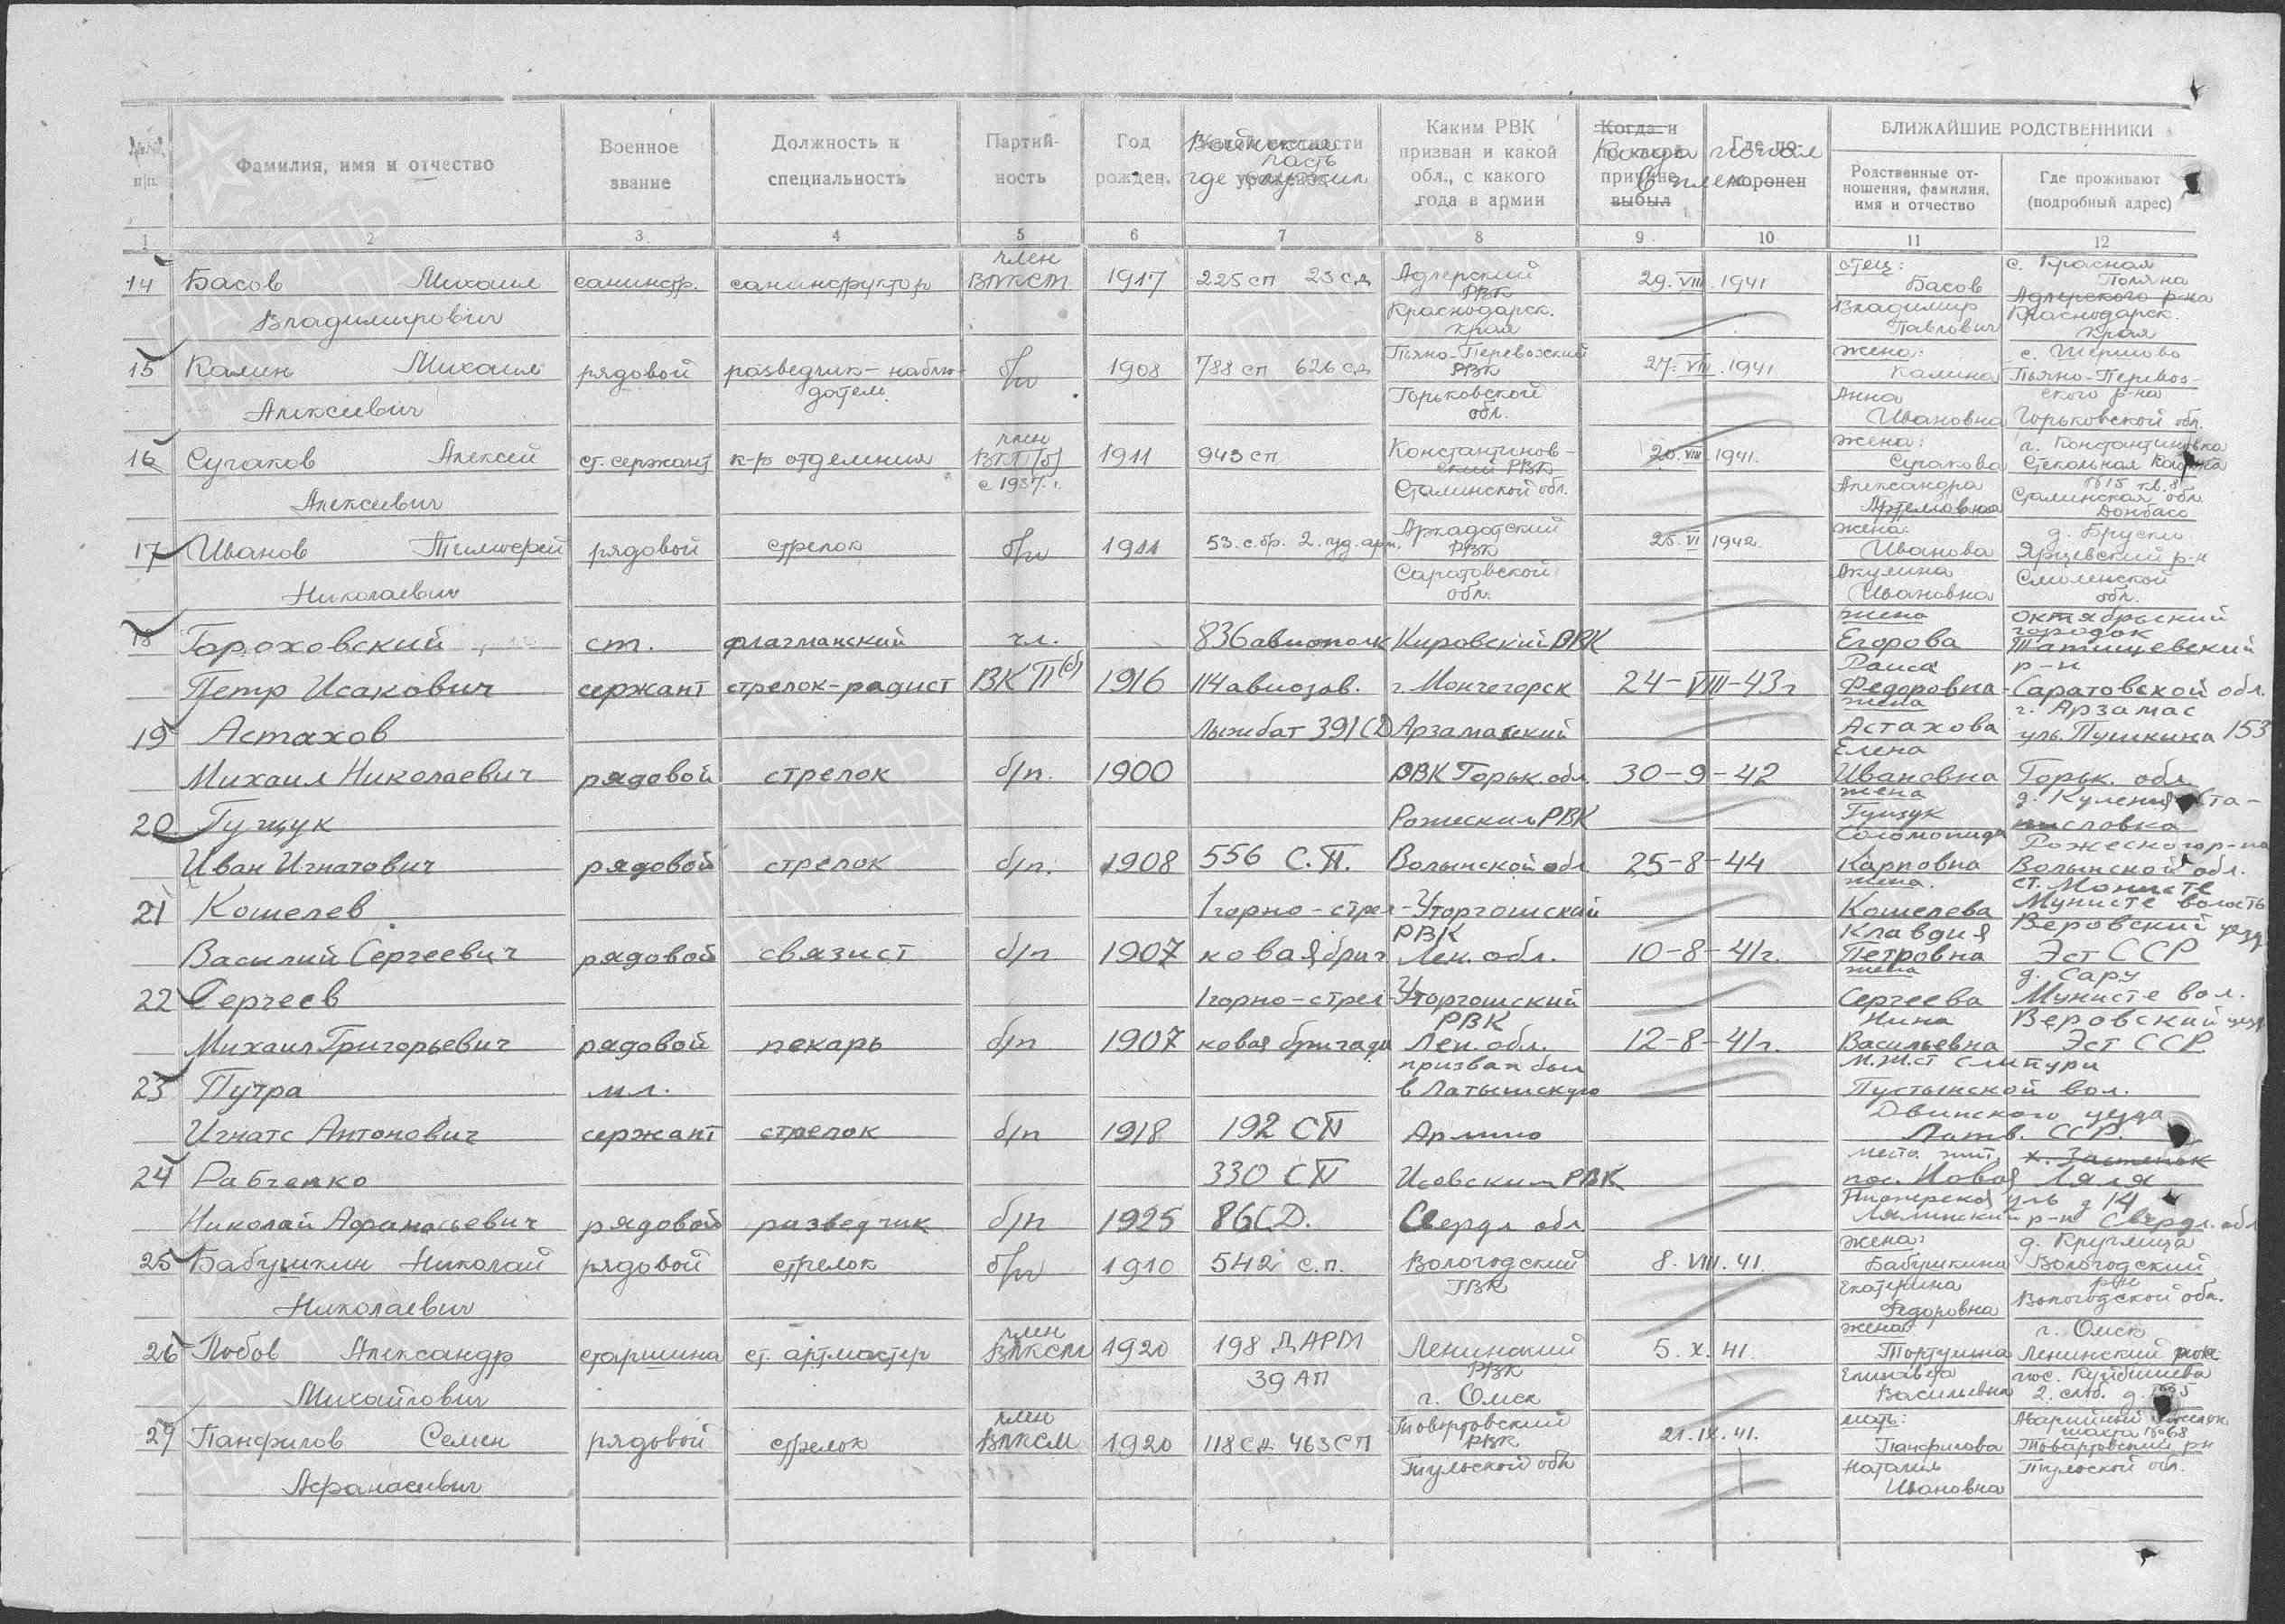 №№ п/п.
Фамилия, имя и отчество
Военное звание
Должность и специальность
Партийность
Год рожден.
Воинская часть где служил
Каким РВК призван и какой обл., с какого года в армии
Когда и по какой причине выбыл
Где похоронен
Когда попал в плен
БЛИЖАЙШИЕ РОДСТВЕННИКИ
Родственные отношения, фамилия, имя и отчество
Где проживают (подробный адрес)
1 2 3 4 5 6 7 8 9 10 11 12
14 Басов Михаил санинстр. санинструктор член ВЛКСМ 1917 225 сп 23 сд Адлерский РВК 29.VIII.1941 отец: Басов с. Красная Поляна
Владимирович Краснодарск. края Владимир Павлович Адлерского р-на Краснодарск. края
15 Калин Михаил рядовой разведчик-наблюдатель б/п 1908 788 сп 626 сд Пьяно-Перевозский РВК 27.VIII.1941 жена: Калина с. Шершово Пьяно-Перевоз-
Алексеевич Горьковской обл. Анна Ивановна ского р-на Горьковской обл.
16 Сучаков Алексей ст. сержант к-р отделения член ВКП(б) с 1937 г. 1911 943 сп Константинов-ский РВК 20.VIII.1941. жена: Сучакова г. Константиновка Стекольная
Алексеевич Сталинской обл. Александра Артемовна №15 кв. 8 Сталинская обл. Донбасс
17 Иванов Тимофей рядовой стрелок б/п 1911 53. с.бр. 2. уд. арм. Аркадакский РВК 25.VI 1942 жена: Иванова д. Ярцевский р-н
Николаевич Саратовской обл. Акулина Ивановна Смоленской обл.
18 Гороховский ст. флагманский чл. 836 авиополк Кировский РВК жена Егорова октябрьский городок Татищевский
Петр Исакович сержант стрелок-радист ВКП(б) 1916 114 авиозав. г. Мончегорск 24-VIII-43г Раиса Федоровна р-н Саратовской обл.
19 Астахов лыжбат 391 СД Арзамаский жена Астахова г. Арзамас ул. Пушкина 153
Михаил Николаевич рядовой стрелок б/п. 1900 РВК Горьк. обл. 30-9-42 Елена Ивановна Горьк. обл.
20 Гущук Рожескии РВК жена Гущук
Иван Игнатович рядовой стрелок б/п. 1908 556 С.П. Волынской обл. 25-8-44 Карповна Рожесного р-на Волынской обл.
21 Кошелев 1 горно-стрел- Уторгошский жена. Кошелева ст. Монисте Мунисте волость
Василий Сергеевич рядовой связист б/п 1907 ковая бриг РВК Лен. обл. 10-8-41г. Клавдия Петровна Веровский уезд Эст ССР
22 Сергеев 1 горно-стрел- Уторгошский жена Сергеева д. Сару Мунисте вол.
Михаил Григорьевич рядовой пекарь б/п 1907 ковая бригада РВК Лен. обл. 12-8-41г. Нина Васильевна Веровский уезд Эст ССР
23 Путра мл. призван был в Латышскую Пустынской вол.
Игнатс Антонович сержант стрелок б/п 1918 192 СП Армию Двинского уезда Латв. ССР.
24 Рабченко 330 СП Исовским РВК места жит. х. Застенок пос. Новая Ляля
Николай Афанасьевич рядовой разведчик б/п 1925 86 С.Д. Свердл обл Пионерская ул. д 14 Лялинский р-н Свердл. обл
25 Бабушкин Николай рядовой стрелок б/п 1910 542 с.п. Вологодский ГВК 8.VIII.41. жена: Бабушкина д. Круглица Вологодский
Николаевич Екатерина Федоровна р-н Вологодской обл.
26 Побов Александр старшина ст. артмастер член ВЛКСМ 1920 198 ДАРМ Ленинский РВК 5.X.41. жена г. Омск Ленинский
Михайлович 39 АП г. Омск Елизавета Васильевна пос. Куйбышева 2.
29 Панфилов Семен рядовой стрелок член ВЛКСМ 1920 118 сд 463 СП Товарковский РВК 21.IX.41. мать: Панфилова Аварийный шахта №68 Товарковский рн
Афанасиевич Тульской обл Наталия Ивановна Тульской обл.
ПАМЯТЬ НАРОДА